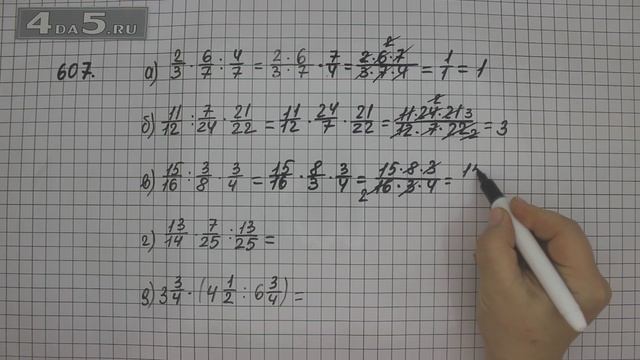 4DA5.RU
607. а) 2/3 · 6/7 : 4/7 = 2·6/3·7 · 7/4 = 2·6·7/3·7·4 = 1/1 = 1
б) 11/12 : 7/24 · 21/22 = 11/12 · 24/7 · 21/22 = 11·24·21/12·7·22 = 3
в) 15/16 : 3/8 · 3/4 = 15/16 · 8/3 · 3/4 = 15·8·3/16·3·4 =
г) 13/14 · 7/25 : 13/25 =
д) 3 3/4 · (4 1/2 : 6 3/4) =